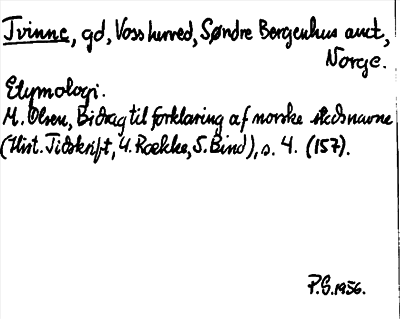 Tvinne, gd, Voss herred, Søndre Bergenhus amt,
Norge.
Etymologi.
M. Olsen, Bidrag til forklaring af norske stedsnavne
(Hist. Tidskrift, 4. Række, 5. Bind), s. 4. (157).
P.G. 1956.